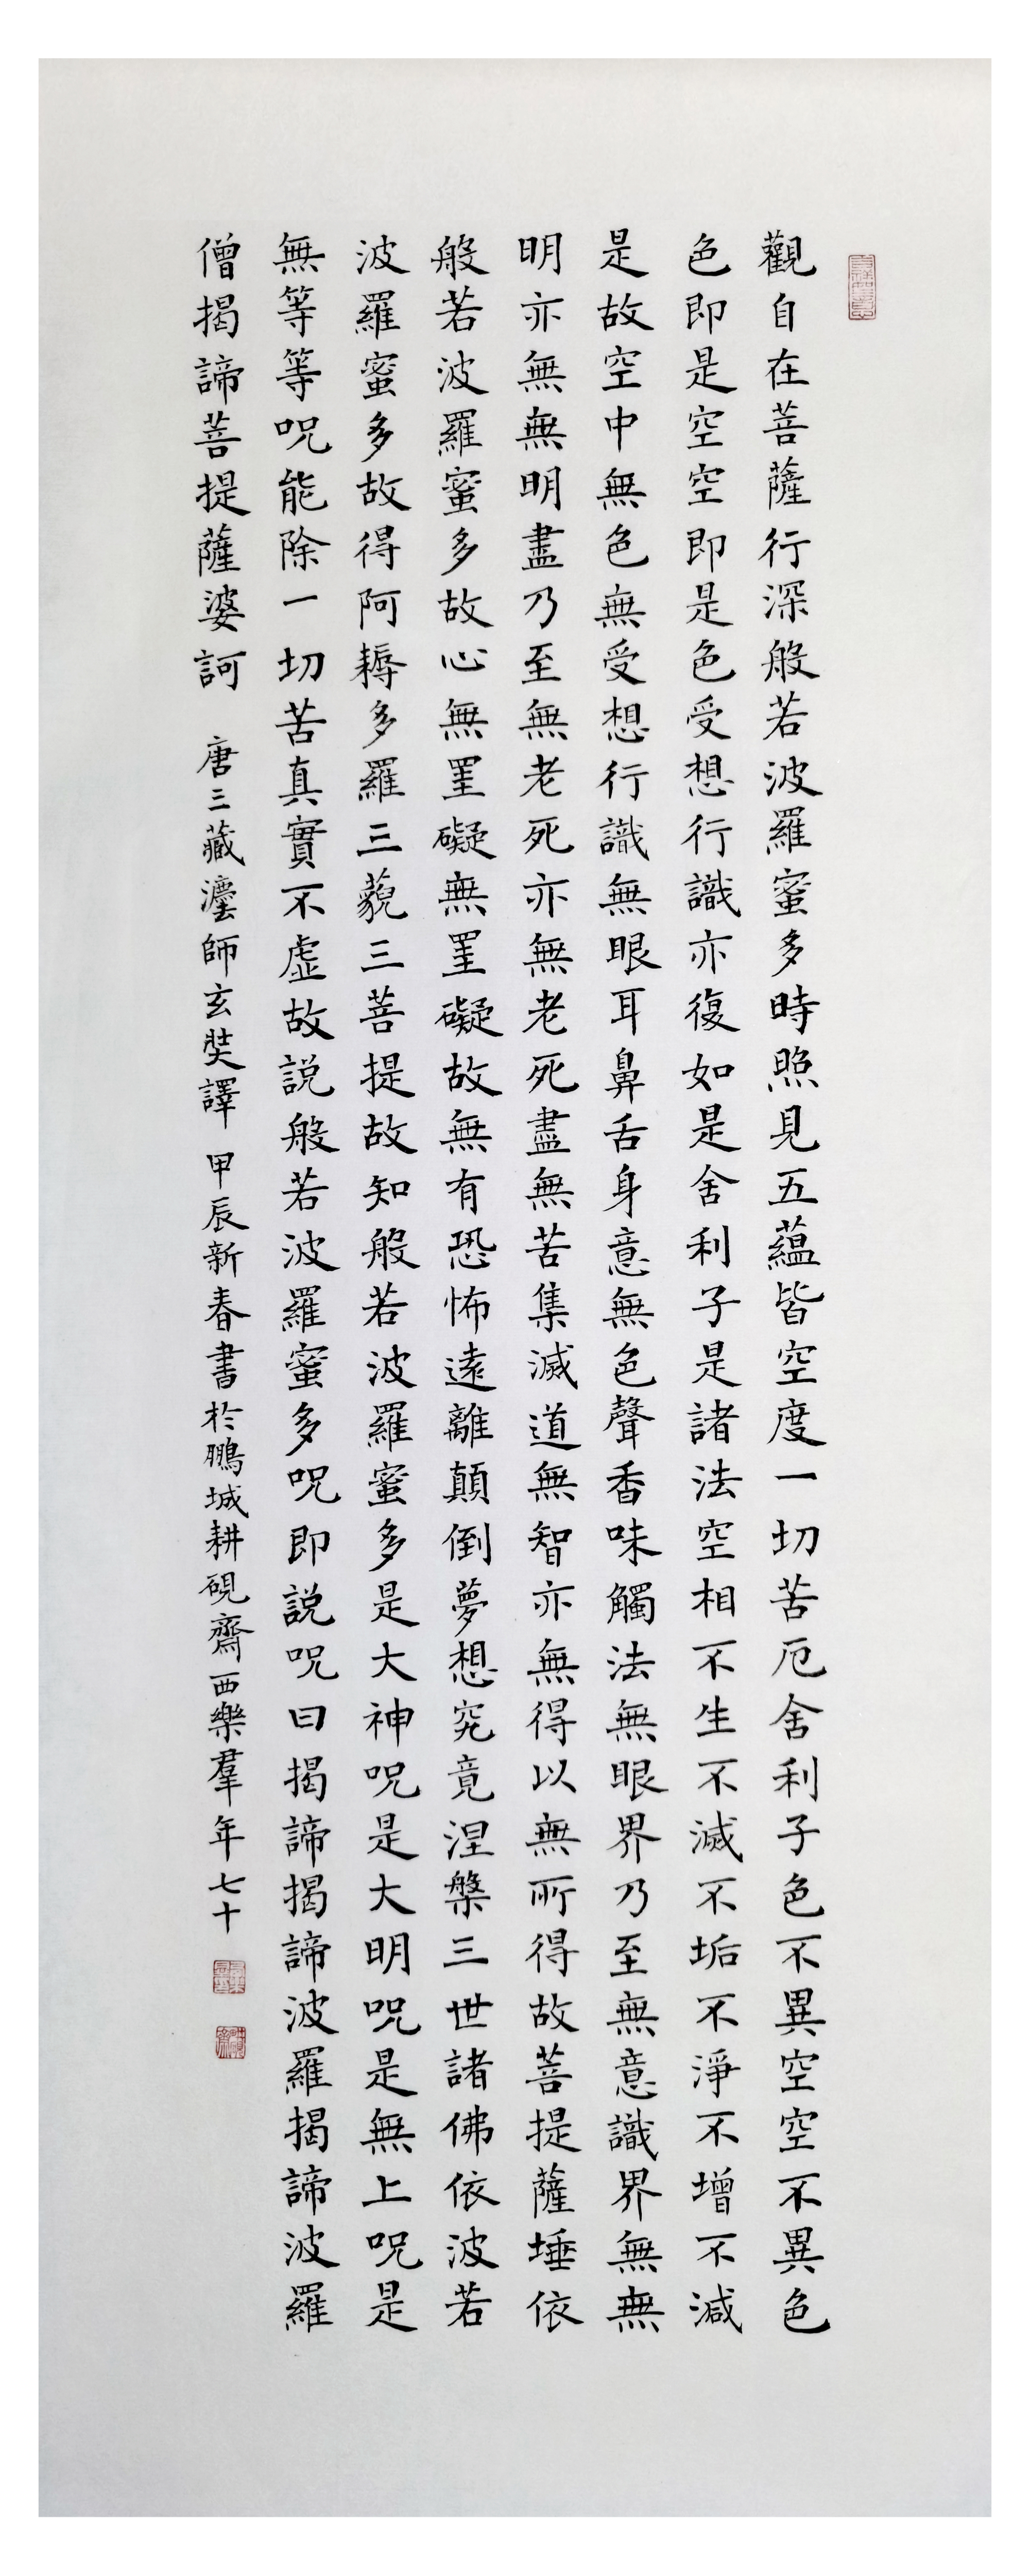 觀自在菩薩行深般若波羅蜜多時照見五蘊皆空度一切苦厄舍利子色不異空空不異色
色即是空空即是色受想行識亦復如是舍利子是諸法空相不生不滅不垢不淨不增不減
是故空中無色無受想行識無眼耳鼻舌身意無色聲香味觸法無眼界乃至無意識界無無
明亦無無明盡乃至無老死亦無老死盡無苦集滅道無智亦無得以無所得故菩提薩埵依
般若波羅蜜多故心無罣礙無罣礙故無有恐怖遠離顛倒夢想究竟涅槃三世諸佛依波若
波羅蜜多故得阿耨多羅三藐三菩提故知般若波羅蜜多是大神呪是大明呪是無上呪是
無等等呪能除一切苦真實不虛故説般若波羅蜜多呪即説呪曰揭諦揭諦波羅揭諦波羅
僧揭諦菩提薩婆訶 唐三藏灋師玄奘譯 甲辰新春書於鵬城耕硯齋西樂羣年七十